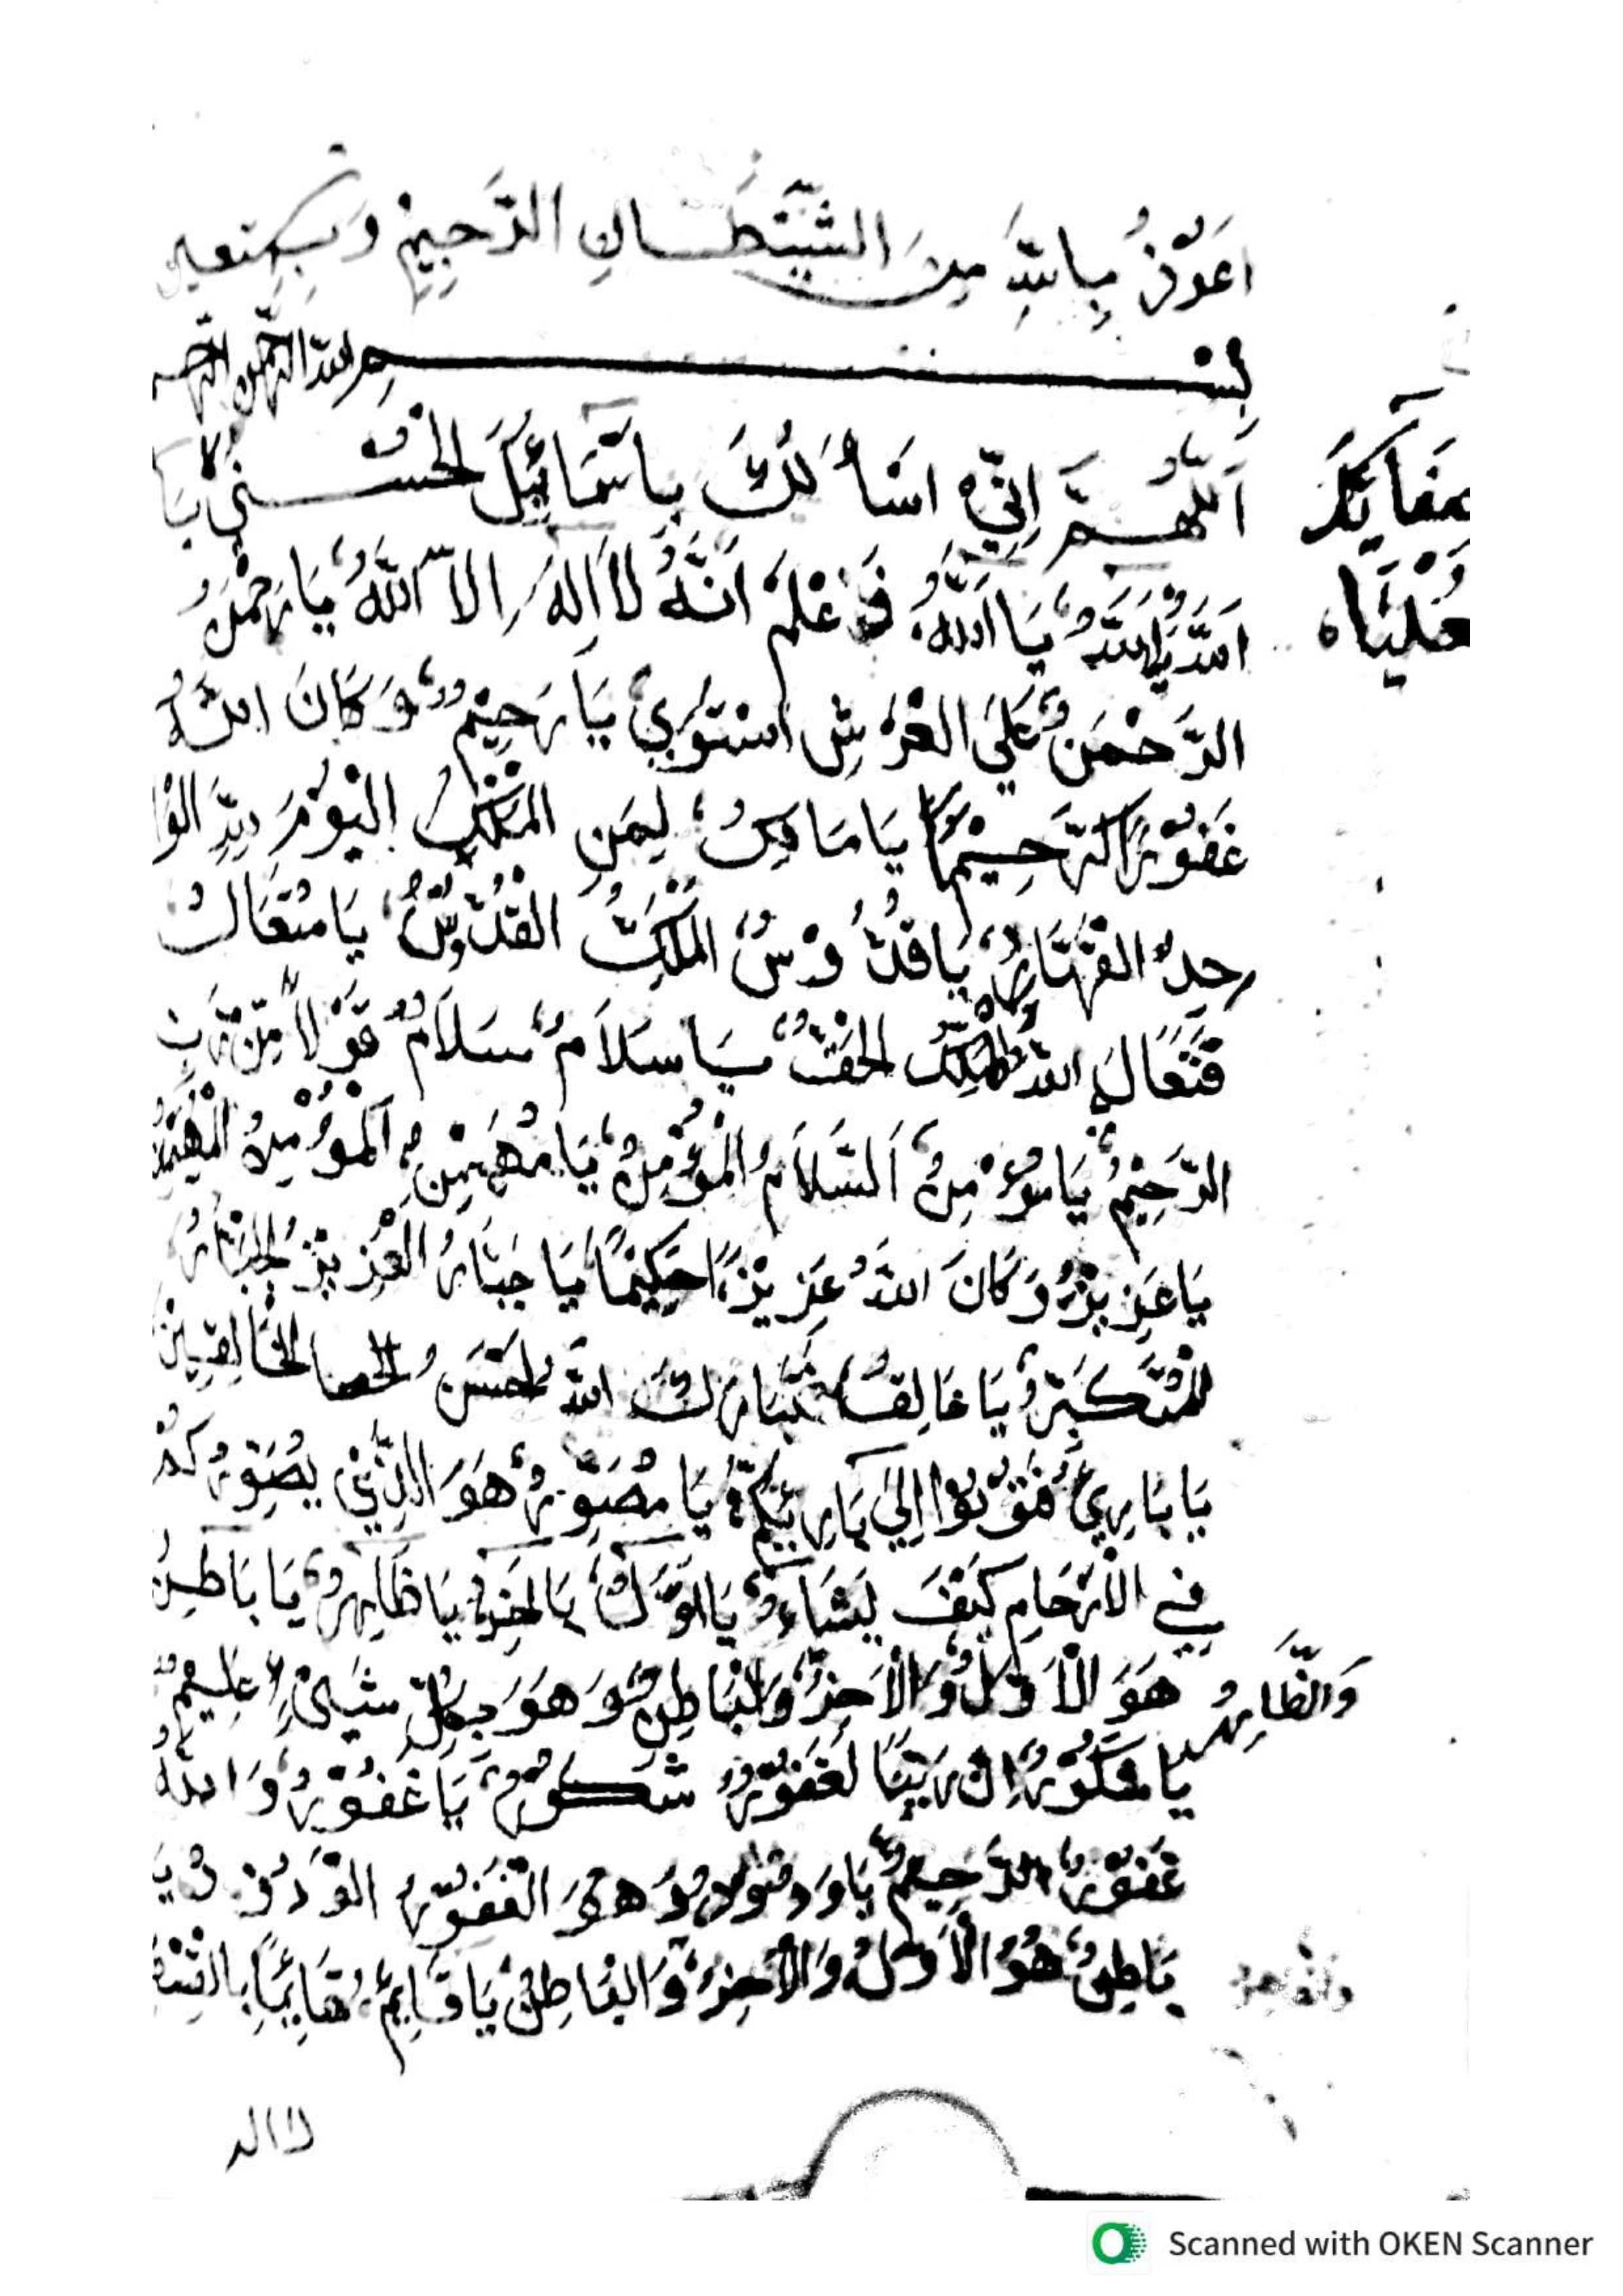 اَعُوْذُ بِاللّٰهِ مِنَ الشَّيْطَانِ الرَّجِيْمِ وَبِه نستعين
بِسْمِ اللّٰهِ الرَّحْمٰنِ الرَّحِيم
اَللّٰهُمَّ اِنِّيْ اَسْأَلُكَ بِاَسْمَائِكَ الْحُسْنٰى يَا
اَللّٰهُ يَا اَللّٰهُ يَا اَللّٰهُ فَاعْلَمْ اَنَّهُ لَا اِلٰهَ اِلَّا اللّٰهُ يَا رَحْمٰنُ
الرَّحْمٰنُ عَلَى الْعَرْشِ اسْتَوٰى يَا رَحِيْمُ وَكَانَ اللّٰهُ
غَفُوْرًا رَّحِيْمًا يَا مَالِكُ لِمَنِ الْمُلْكُ الْيَوْمَ لِلّٰهِ الْوَا
حِدِ الْقَهَّارِ يَا قُدُّوْسُ الْمَلِكُ الْقُدُّوْسُ يَا مُتَعَالُ
فَتَعَالَى اللّٰهُ الْمَلِكُ الْحَقُّ يَا سَلَامُ سَلَامٌ قَوْلًا مِّنْ رَبٍّ
الرَّحِيْمُ يَا مُؤْمِنُ اَلسَّلَامُ الْمُؤْمِنُ يَا مُهَيْمِنُ اَلْمُؤْمِنُ الْمُهَيْمِنُ
يَا عَزِيْزُ وَكَانَ اللّٰهُ عَزِيْزًا حَكِيْمًا يَا جَبَّارُ الْعَزِيْزُ الْجَبَّارُ
الْمُتَكَبِّرُ يَا خَالِقُ فَتَبَارَكَ اللّٰهُ اَحْسَنُ الْخَالِقِيْنَ
يَا بَارِئُ فَتُوْبُوْا اِلٰى بَارِئِكُمْ يَا مُصَوِّرُ هُوَ الَّذِيْ يُصَوِّرُكُمْ
فِي الْاَرْحَامِ كَيْفَ يَشَاءُ يَا اَوَّلُ يَا اٰخِرُ يَا ظَاهِرُ يَا بَاطِنُ
هُوَ الْاَوَّلُ وَالْاٰخِرُ وَالْبَاطِنُ وَهُوَ بِكُلِّ شَيْءٍ عَلِيْمٌ
وَالظَّاهِرُ
يَا شَكُوْرُ اِنَّ رَبَّنَا لَغَفُوْرٌ شَكُوْرٌ يَا غَفُوْرُ وَاللّٰهُ
غَفُوْرٌ الرَّحِيْمُ يَا وَدُوْدُ وَهُوَ الْغَفُوْرُ الْوَدُوْدُ يَا
بَاطِنُ هُوَ الْاَوَّلُ وَالْاٰخِرُ وَالْبَاطِنُ يَا قَائِمُ قَائِمًا بِالْقِسْطِ